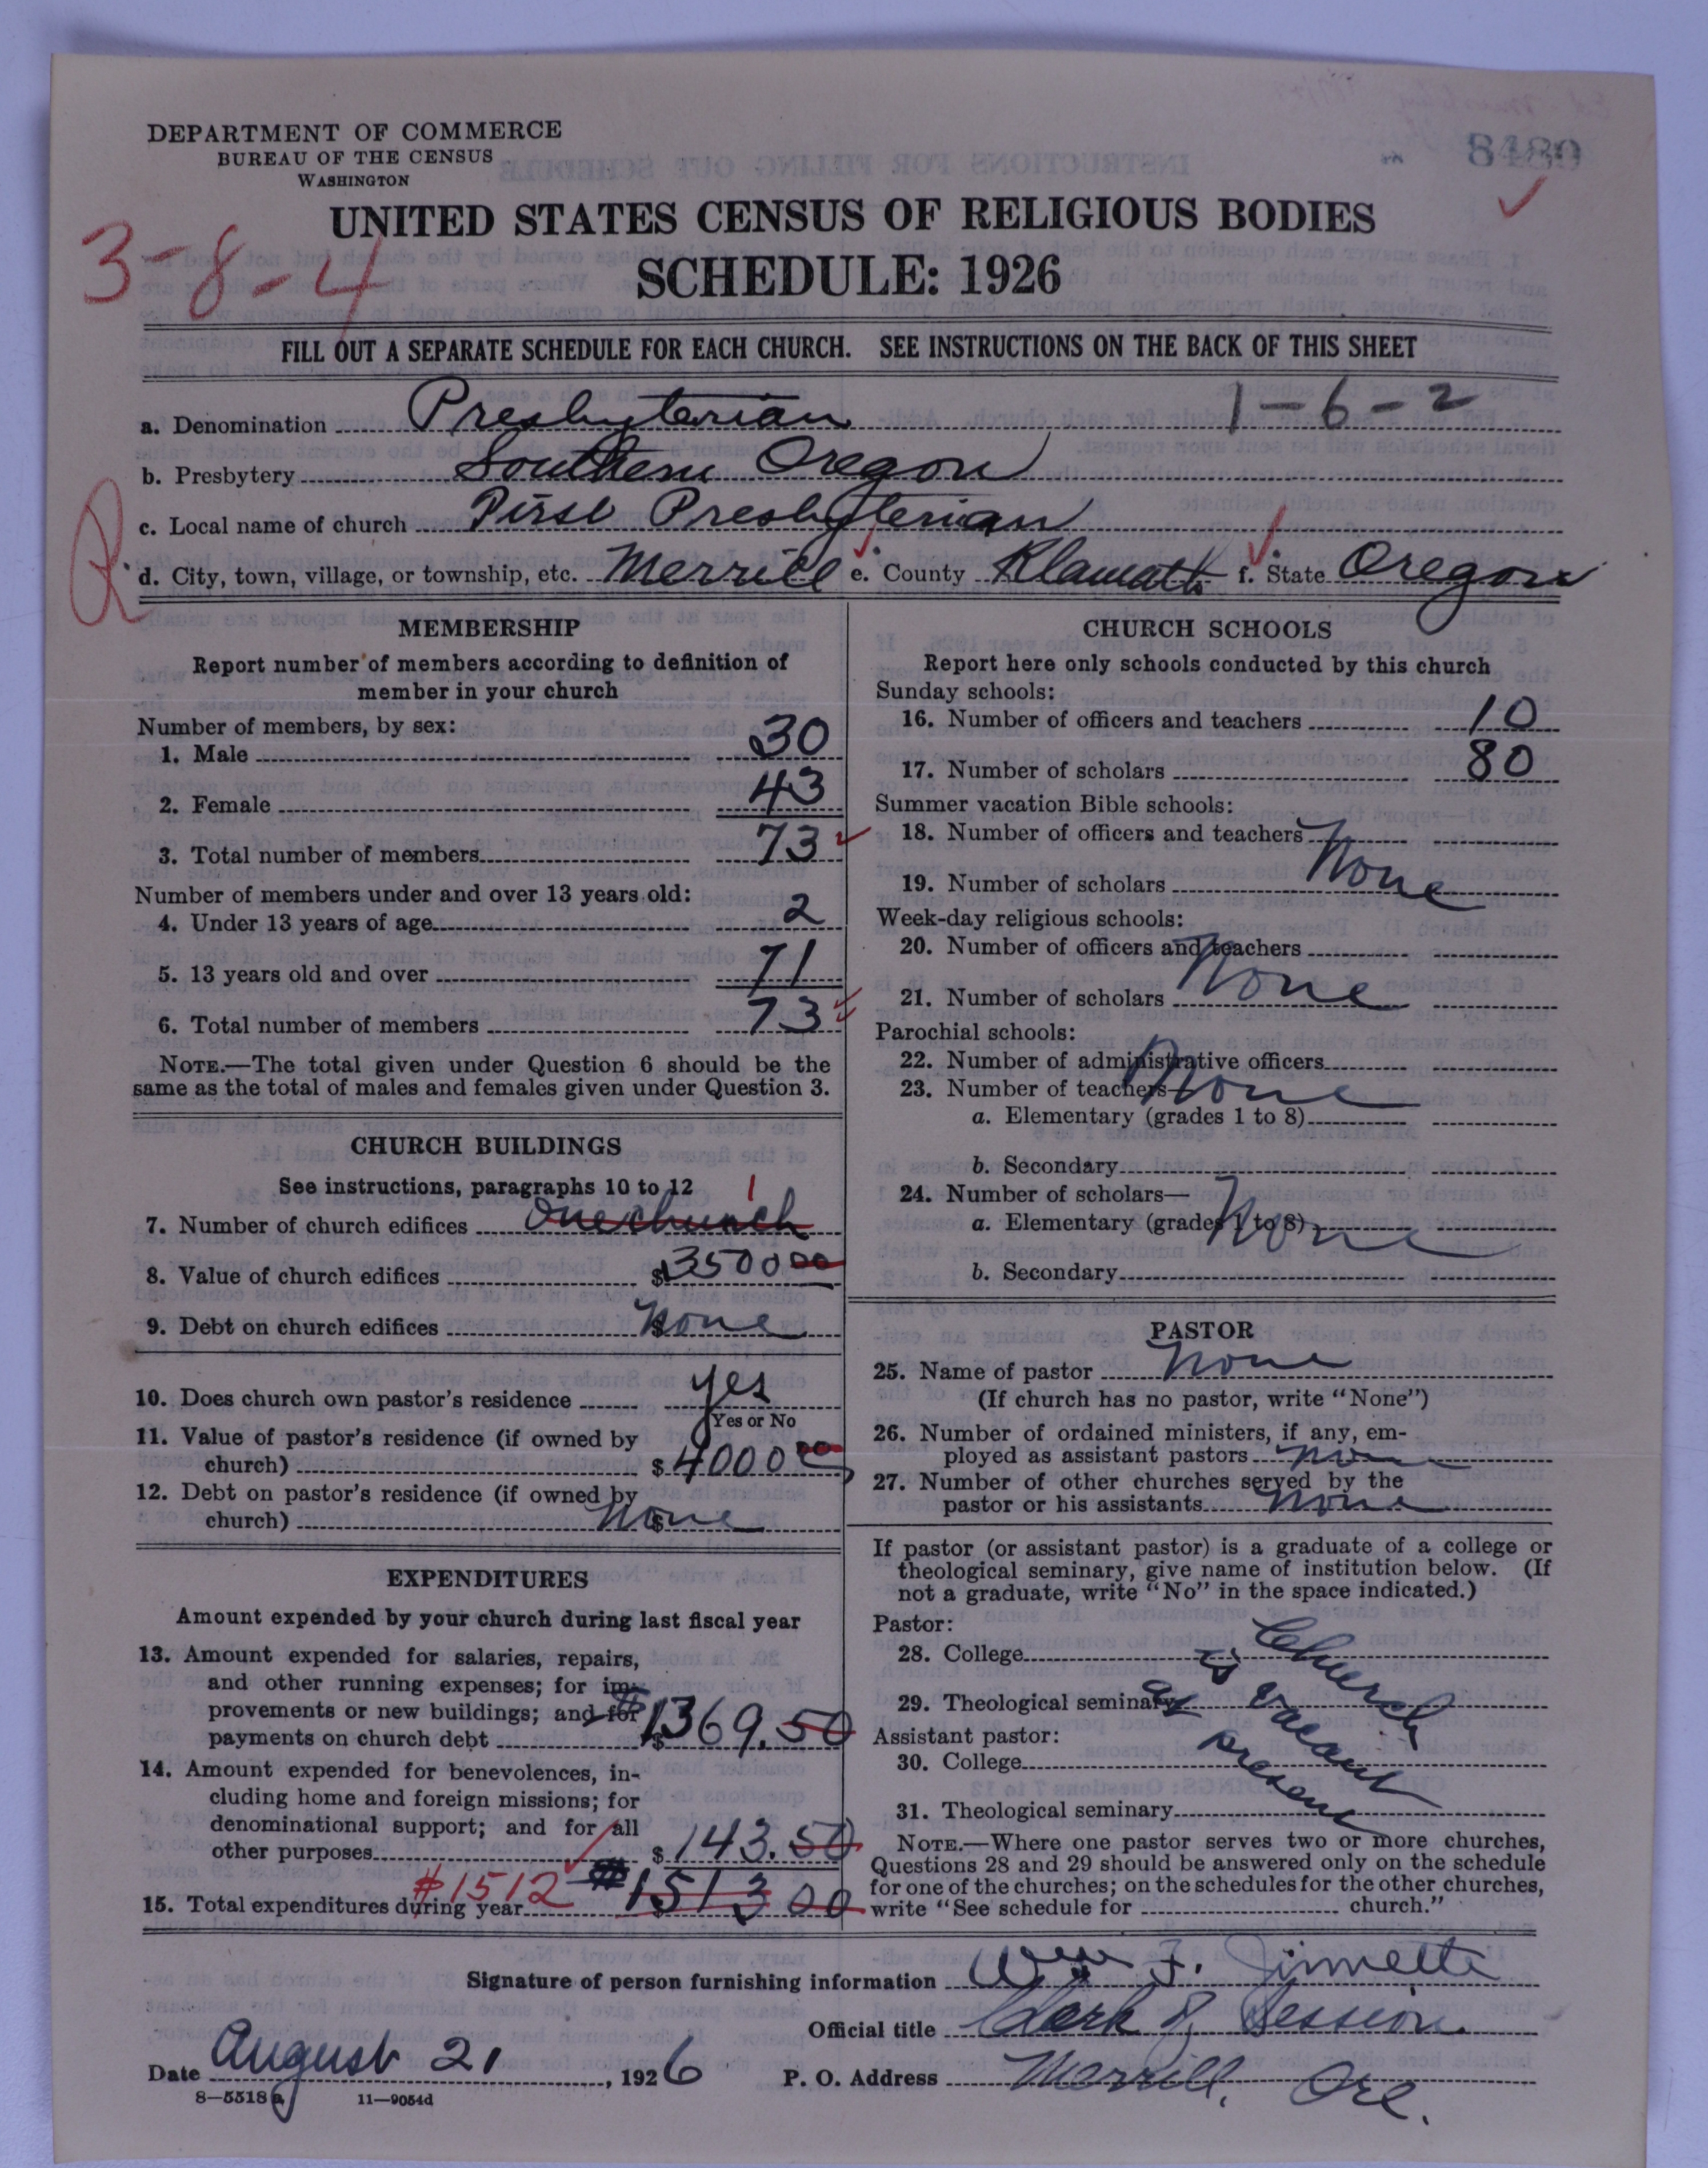 DEPARTMENT OF COMMERCE
BUREAU OF THE CENSUS
WASHINGTON
UNITED STATES CENSUS OF RELIGIOUS BODIES
SCHEDULE: 1926
3-8-4
FILL OUT A SEPARATE SCHEDULE FOR EACH CHURCH. SEE INSTRUCTIONS ON THE BACK OF THIS SHEET
1-6-2
a. Denomination Presbyterian
b. Presbytery Southern Oregon
c. Local name of church First Presbyterian
R
d. City, town, village, or township, etc. Merrill e. County Klamath f. State Oregon
MEMBERSHIP
Report number of members according to definition of
member in your church
Number of members, by sex:
1. Male 30
2. Female 43
3. Total number of members 73
Number of members under and over 13 years old:
4. Under 13 years of age 2
5. 13 years old and over 71
6. Total number of members 73
NOTE.—The total given under Question 6 should be the
same as the total of males and females given under Question 3.
CHURCH BUILDINGS
See instructions, paragraphs 10 to 12
1
7. Number of church edifices One church
8. Value of church edifices $3500 00
9. Debt on church edifices $ None
10. Does church own pastor's residence yes
Yes or No
11. Value of pastor's residence (if owned by
church) $4000 00
12. Debt on pastor's residence (if owned by
church) $ None
EXPENDITURES
Amount expended by your church during last fiscal year
13. Amount expended for salaries, repairs,
and other running expenses; for im-
provements or new buildings; and for
payments on church debt $1369.50
14. Amount expended for benevolences, in-
cluding home and foreign missions; for
denominational support; and for all
other purposes $143.50
#1512
15. Total expenditures during year $1513 00
CHURCH SCHOOLS
Report here only schools conducted by this church
Sunday schools:
16. Number of officers and teachers 10
17. Number of scholars 80
Summer vacation Bible schools:
18. Number of officers and teachers
19. Number of scholars None
Week-day religious schools:
20. Number of officers and teachers
21. Number of scholars None
Parochial schools:
22. Number of administrative officers
23. Number of teachers— None
a. Elementary (grades 1 to 8)
b. Secondary
24. Number of scholars—
a. Elementary (grades 1 to 8) None
b. Secondary
PASTOR
25. Name of pastor None
(If church has no pastor, write "None")
26. Number of ordained ministers, if any, em-
ployed as assistant pastors none
27. Number of other churches served by the
pastor or his assistants none
If pastor (or assistant pastor) is a graduate of a college or
theological seminary, give name of institution below. (If
not a graduate, write "No" in the space indicated.)
Pastor:
28. College
29. Theological seminary
Assistant pastor:
30. College
31. Theological seminary
Church
is vacant
at present
NOTE.—Where one pastor serves two or more churches,
Questions 28 and 29 should be answered only on the schedule
for one of the churches; on the schedules for the other churches,
write "See schedule for church."
Signature of person furnishing information Wm F. Jinnette
Official title Clerk of Session
Date August 21, 1926 P. O. Address Merrill, Ore.
8-5518a 11-9054d